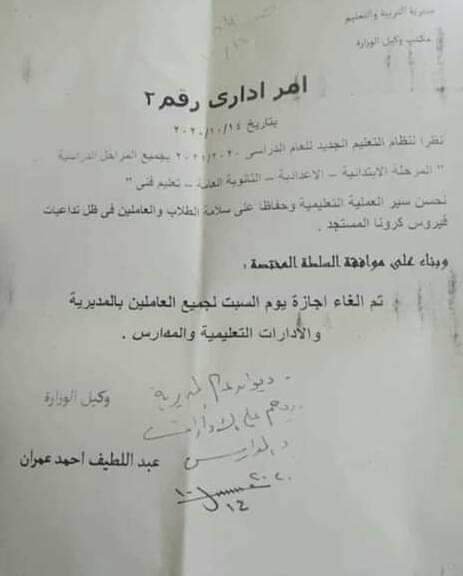 مديرية التربية والتعليم
مكتب وكيل الوزارة
امر ادارى رقم ٢
بتاريخ ٢٠٢٠/١٠/١٤
نظرا لنظام التعليم الجديد للعام الدراسى ٢٠٢١/٢٠٢٠ بجميع المراحل الدراسية
" المرحلة الابتدائية – الاعدادية – الثانوية العامة – تعليم فنى "
لحسن سير العملية التعليمية وحفاظا على سلامة الطلاب والعاملين فى ظل تداعيات
فيروس كرونا المستجد .
وبناء على موافقة السلطة المختصة :
تم الغاء اجازة يوم السبت لجميع العاملين بالمديرية
والأدارات التعليمية والمدارس .
وكيل الوزارة
عبد اللطيف احمد عمران
ديوان عام المديرية
على الادارات
والمدارس
١٤